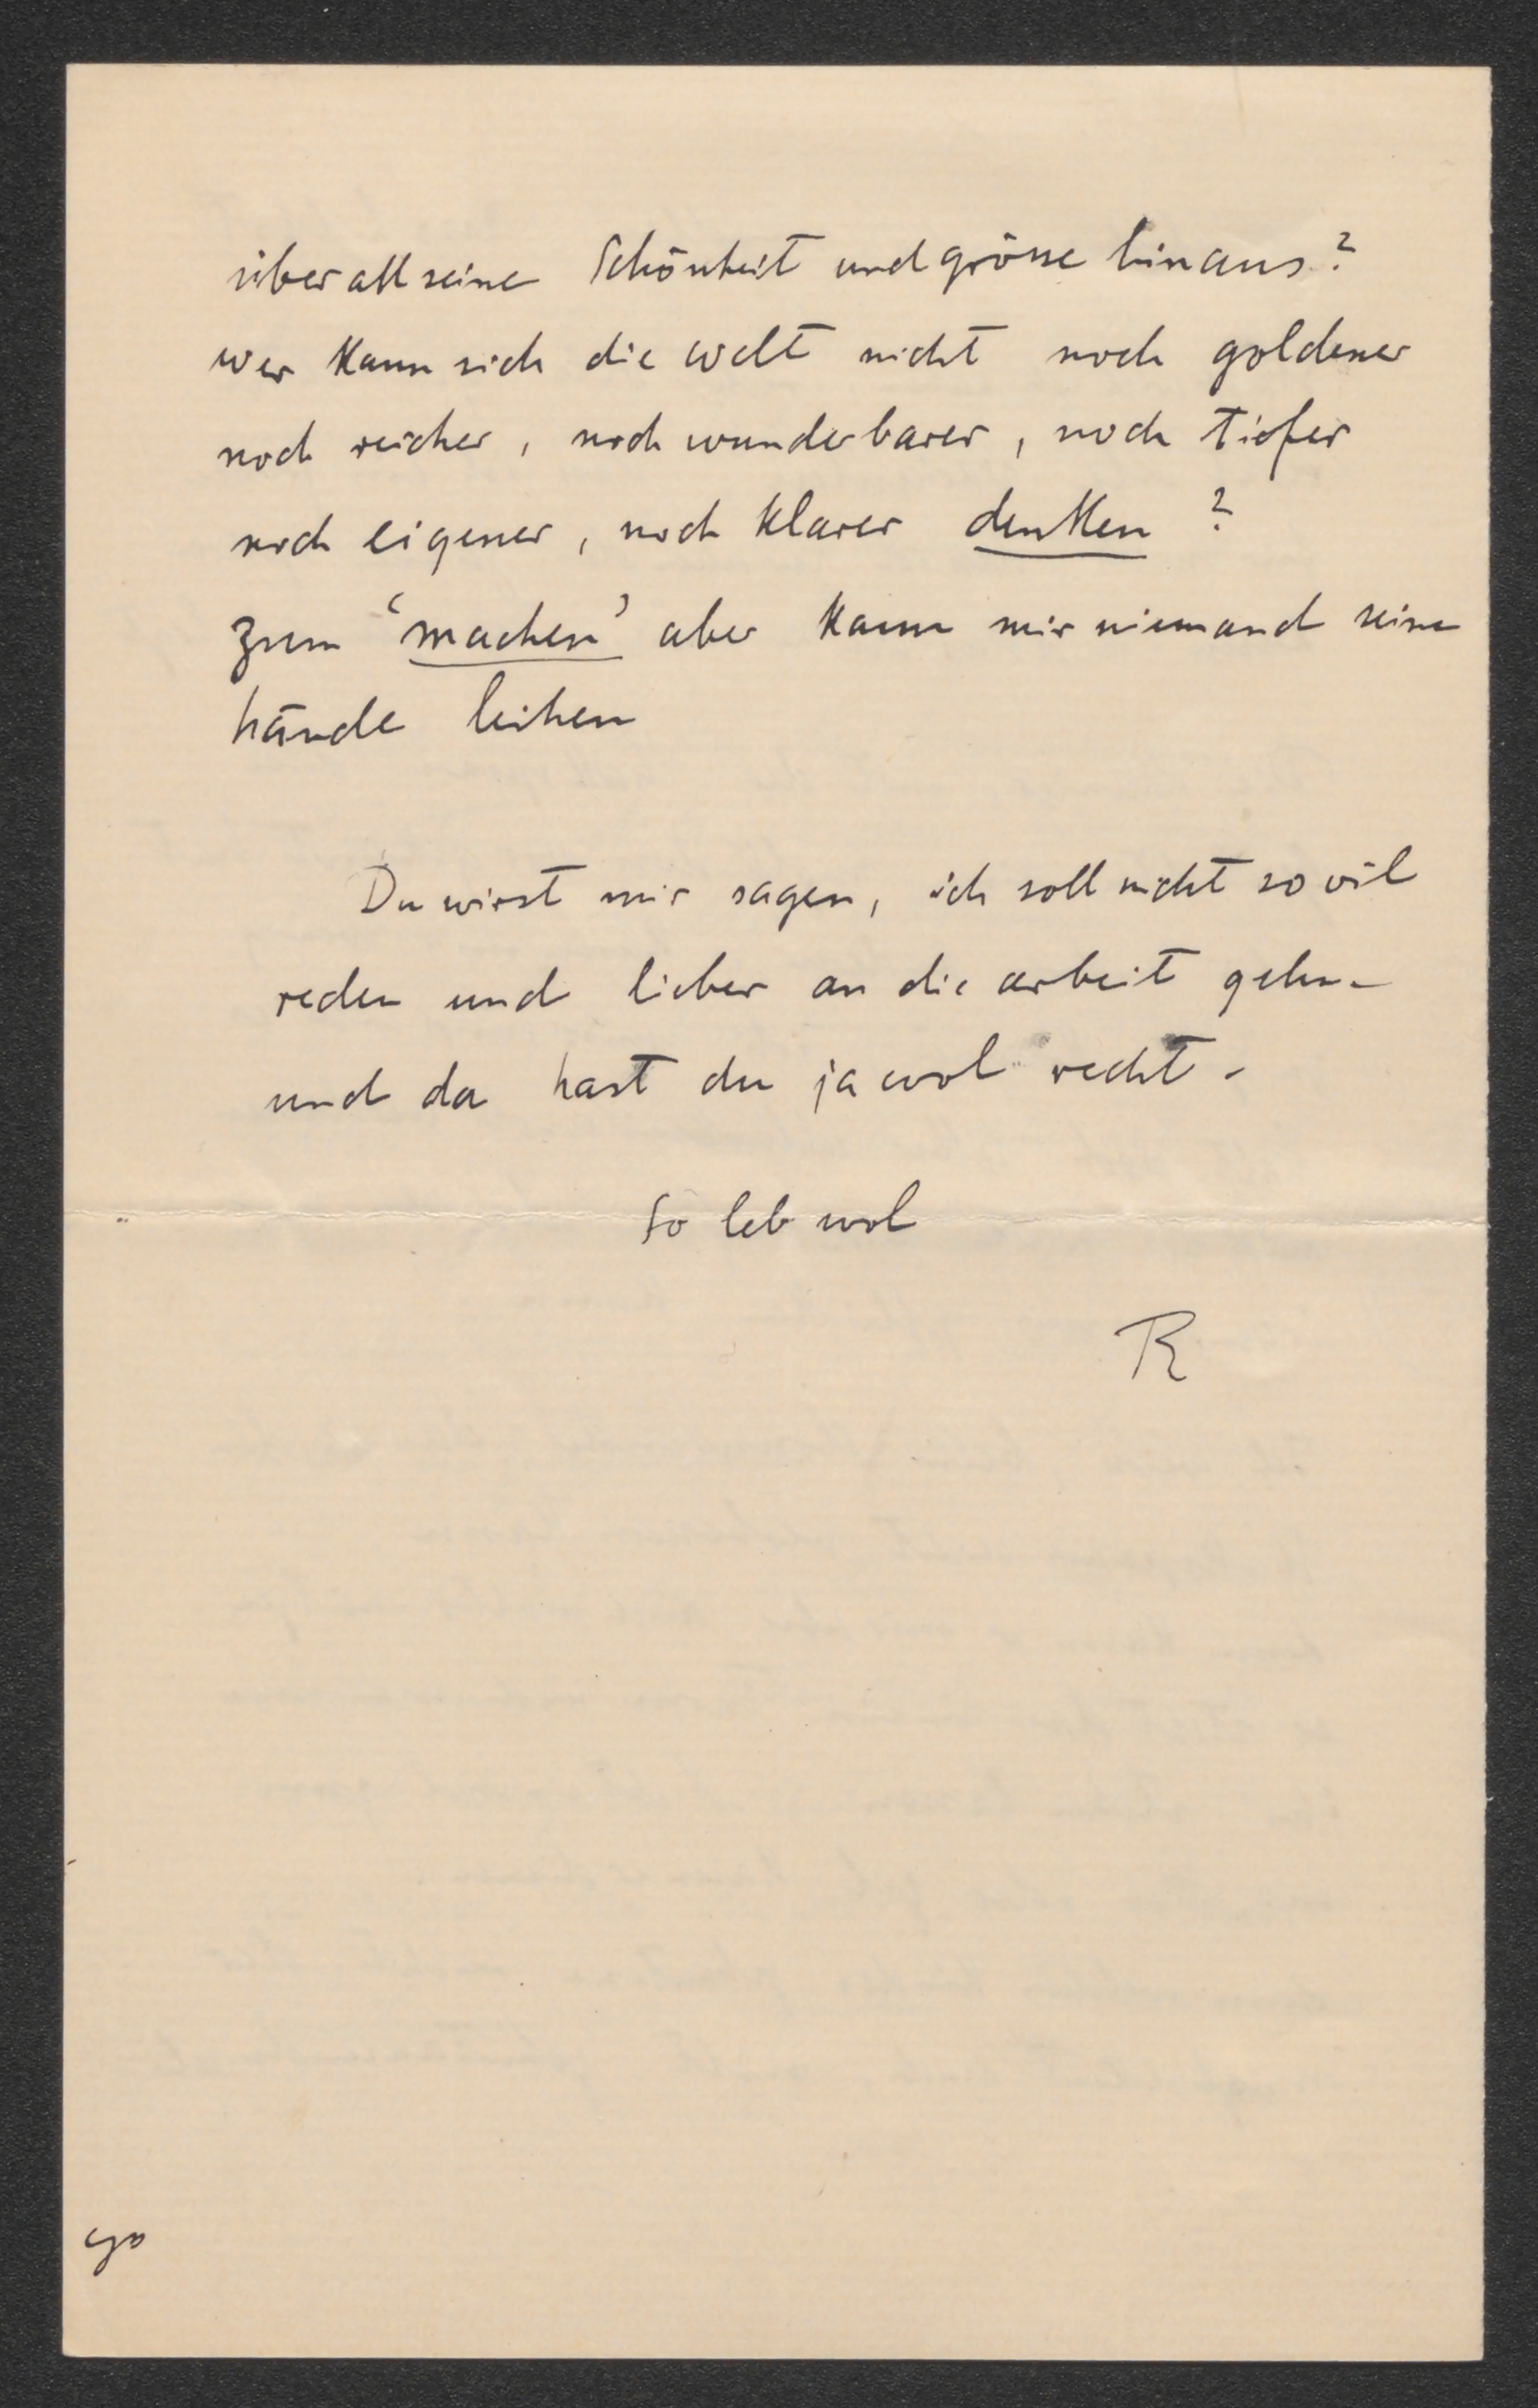 über all seine Schönheit und grösse hinaus?
wer kann sich die welt nicht noch goldener
noch reicher, noch wunderbarer, noch tiefer
noch eigener, noch klarer denken?
zum ‘machen’ aber kann mir niemand seine
hände leihen
Du wirst mir sagen, ich soll nicht so vil
reden und lieber an die arbeit gehn –
und da hast du ja wol recht –
So leb wol
R